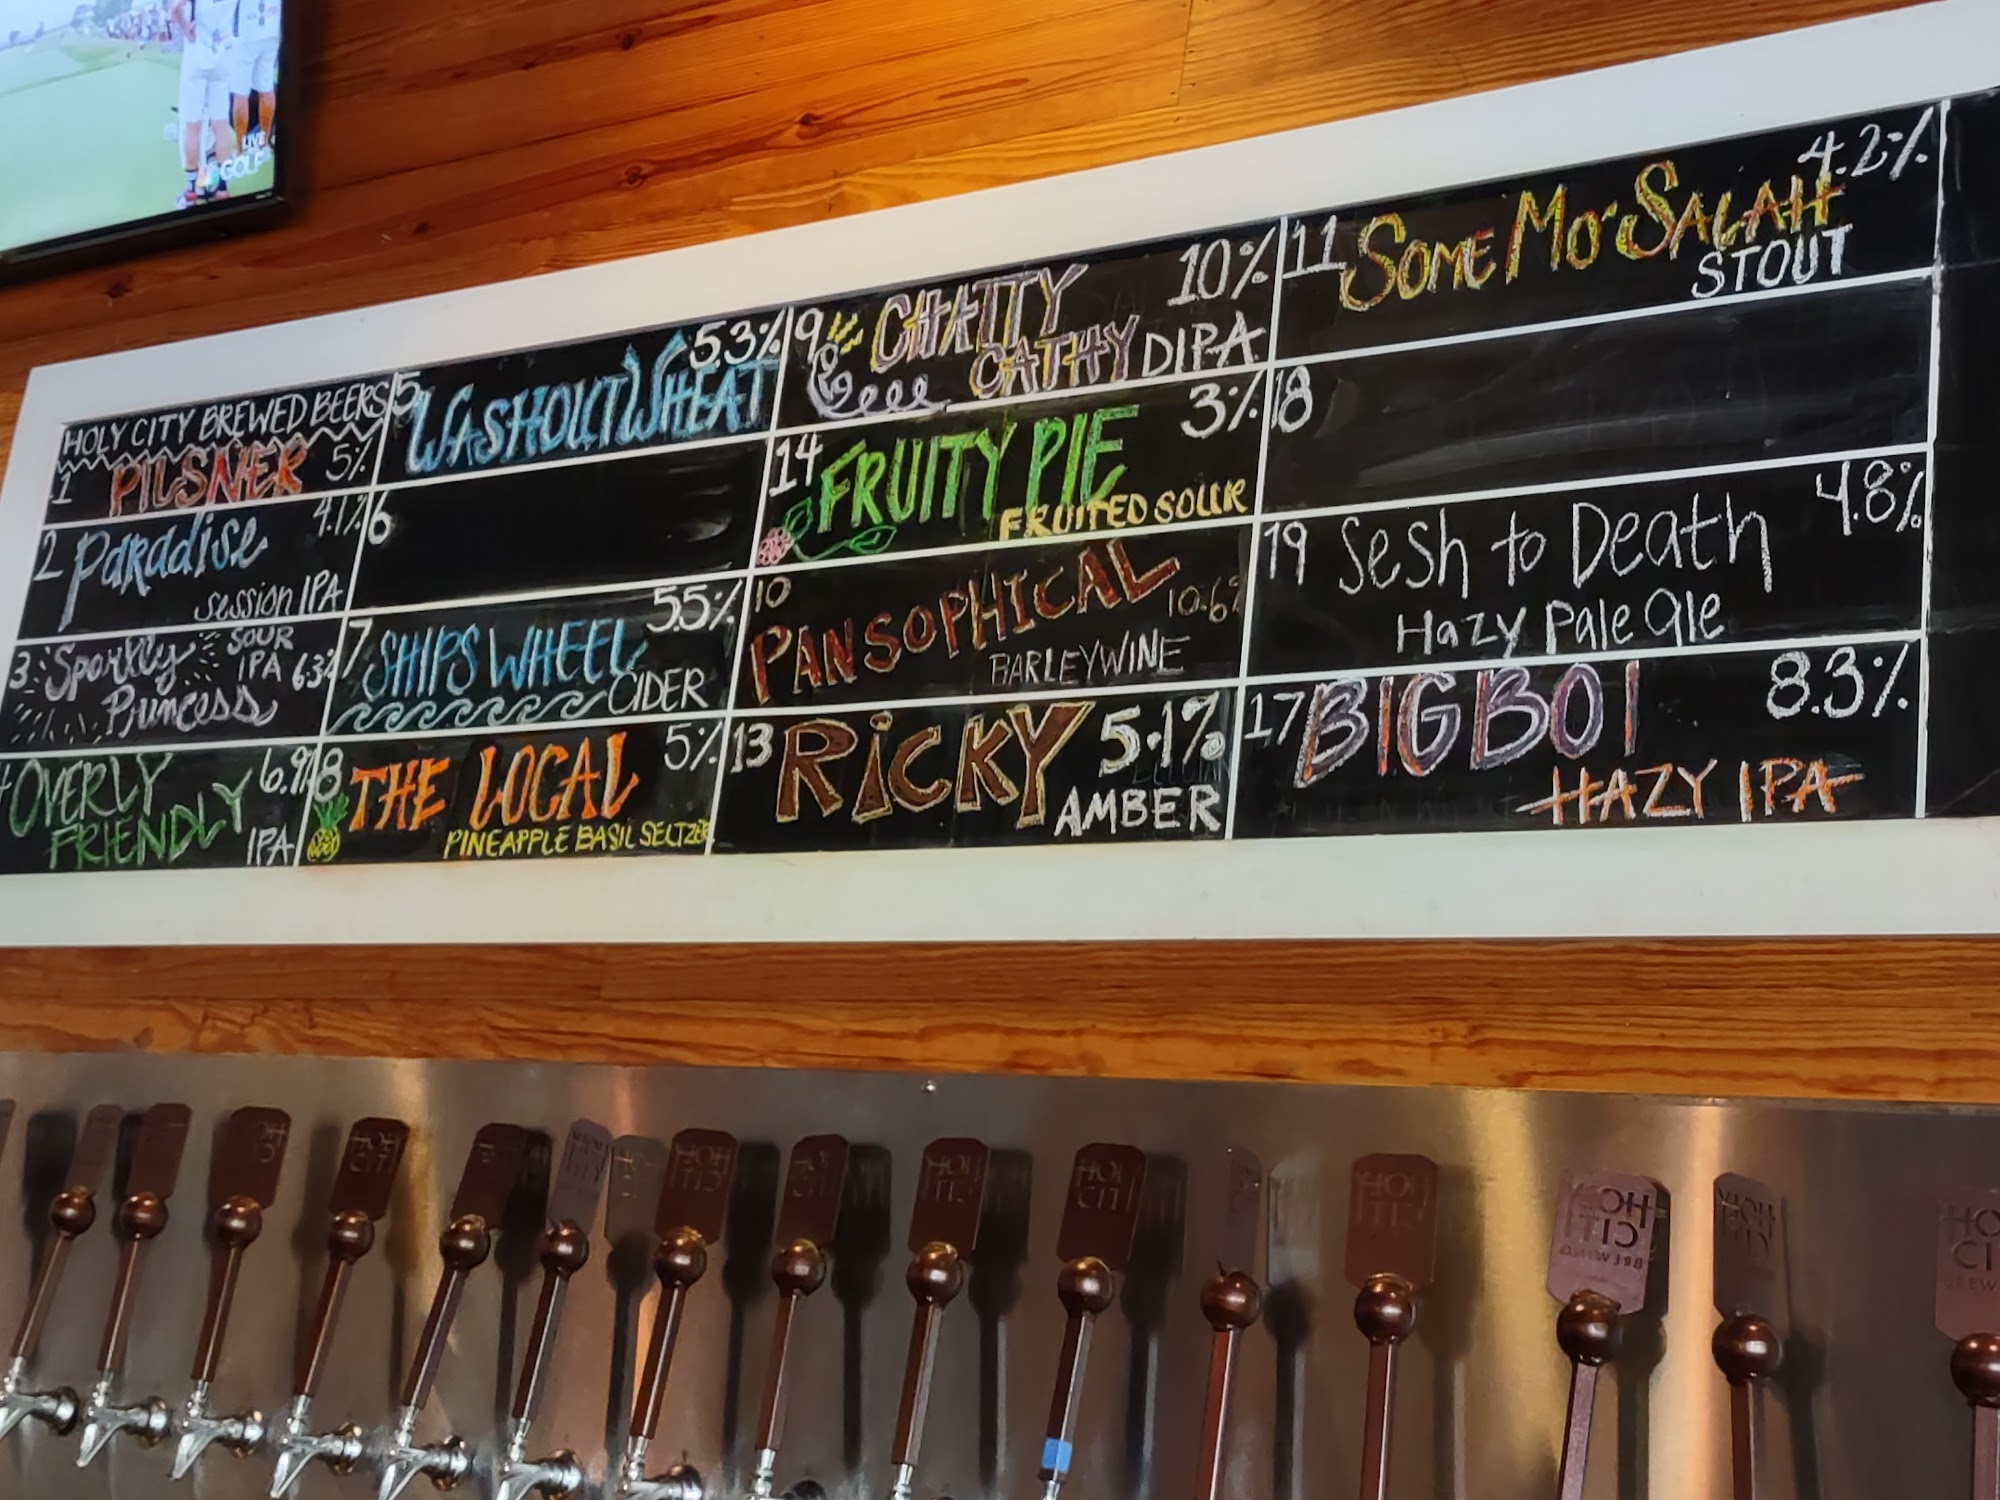 LIVE
GOLF
HOLY CITY BREWED BEERS
1 PILSNER 5%
2 Paradise 4.1%
Session IPA
3 Sparkly Princess
SOUR IPA 6.3%
OVERLY FRIENDLY
IPA
5 WASHOUT WHEAT 5.3%
6
7 SHIPS WHEEL 5.5%
CIDER
8 THE LOCAL 5%
PINEAPPLE BASIL SELTZER
9 CHATTY CATHY 10%
DIPA
14 FRUITY PIE 3%
FRUITED SOUR
10 PANSOPHICAL 10.6%
BARLEYWINE
13 RICKY 5.1%
AMBER
11 SOME MO' SALAH 4.2%
STOUT
18
19 Sesh to Death 4.8%
Hazy Pale ale
17 BIG BOI 8.3%
HAZY IPA
HOLY
CITY
BREWING